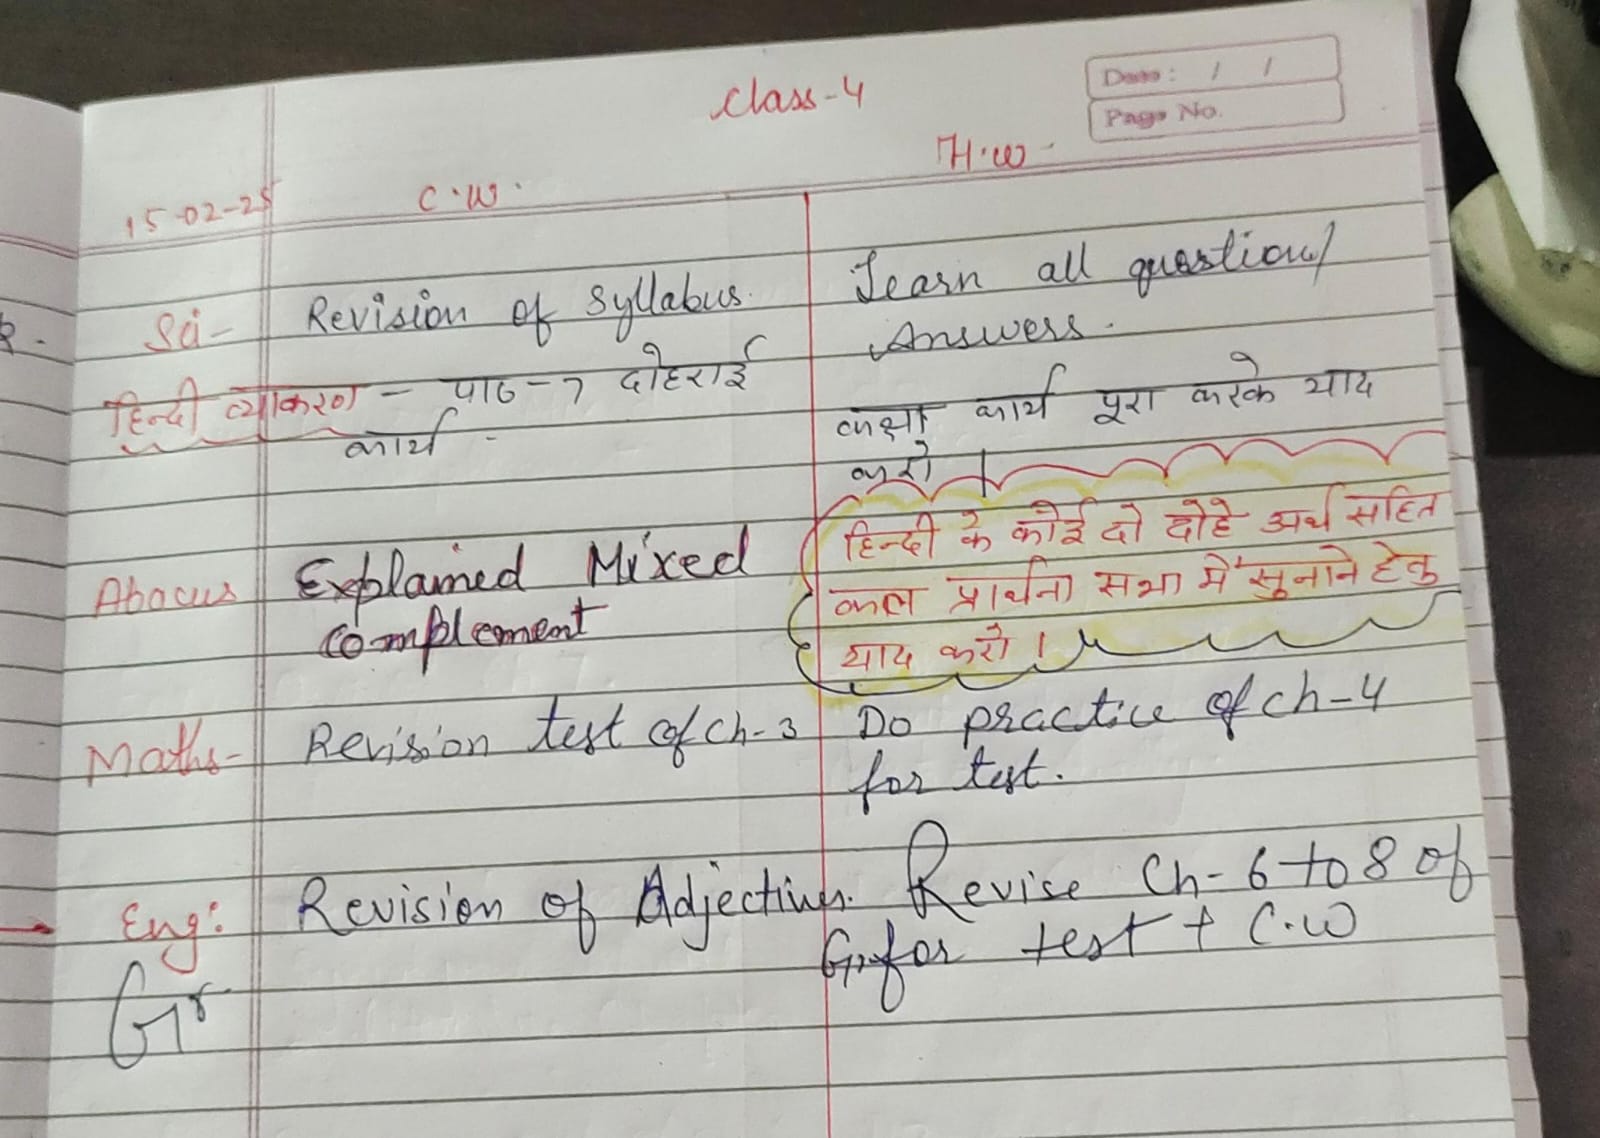 Class-4
Date : / /
Page No.
H.W-
15-02-25 C.W.
Sci- Revision of Syllabus. Learn all question/
Answers.
हिन्दी व्याकरण - पाठ-7 दोहराई
कार्य -
कक्षा कार्य पूरा करके याद
करो।
हिन्दी के कोई दो दोहे अर्थ सहित
कल प्रार्थना सभा में सुनाने हेतु
याद करो।
Abacus Explained Mixed
complement
Maths- Revision test of Ch-3 Do practice of ch-4
for test.
Eng: Revision of Adjectives. Revise Ch-6 to 8 of
Gr. for test + C.W
Gr